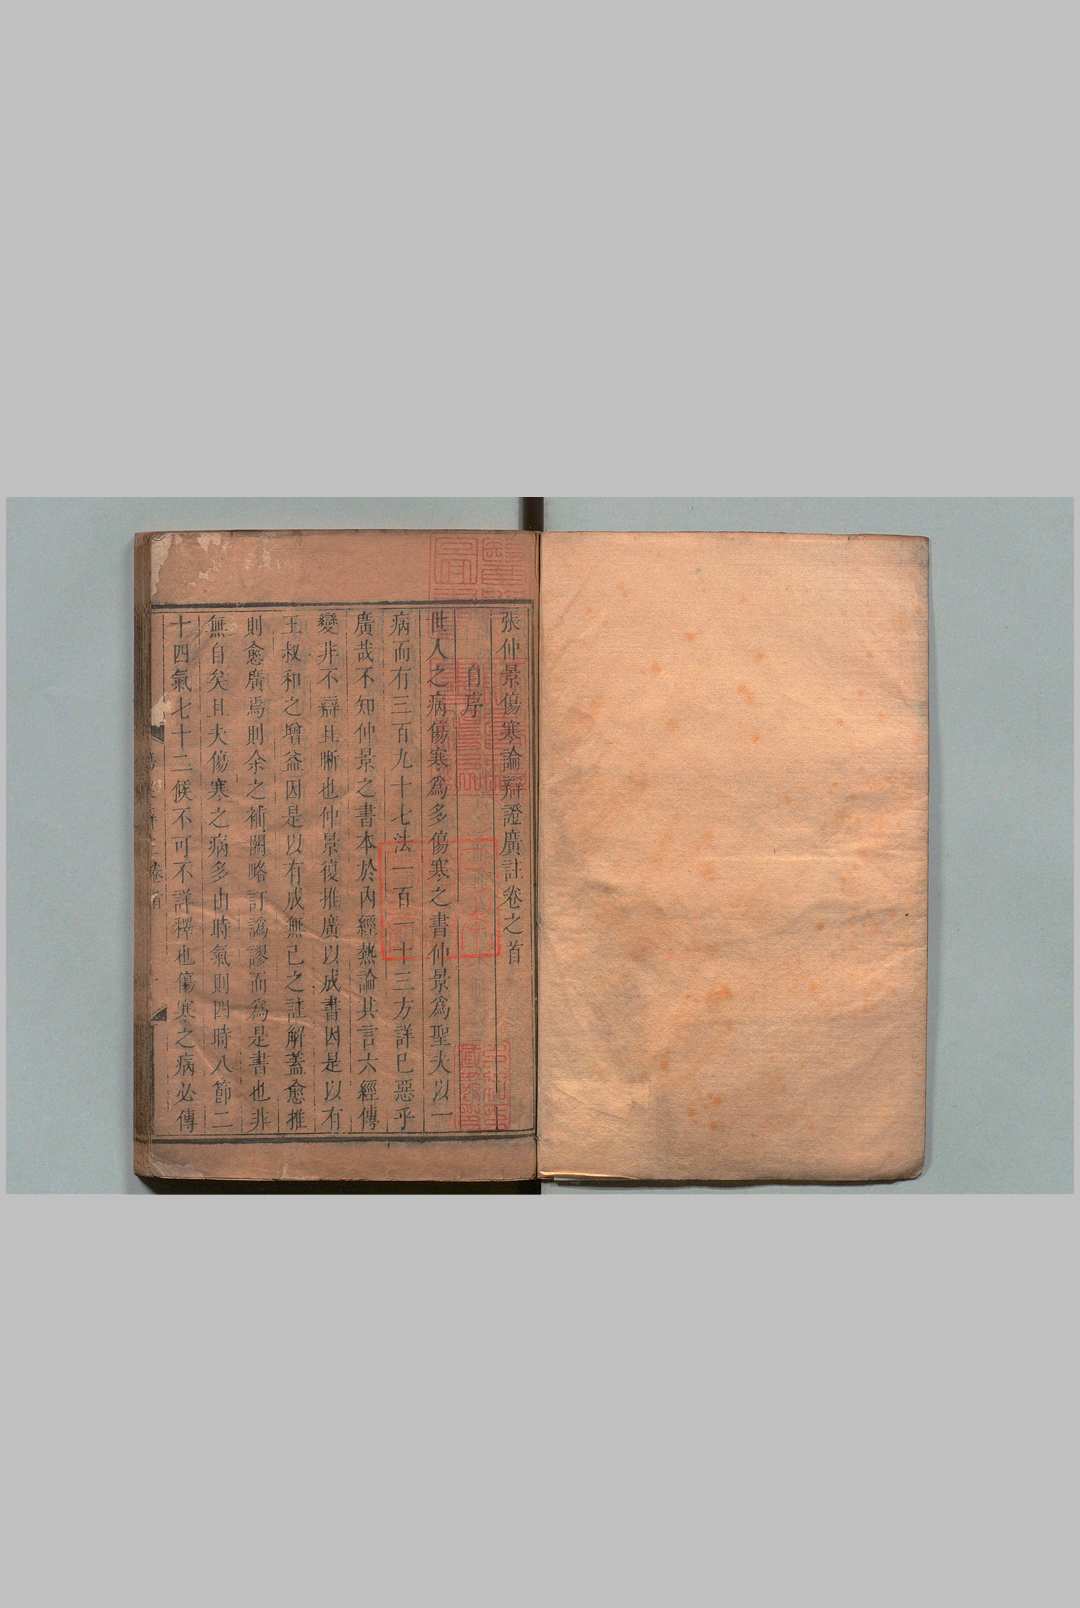 張仲景傷寒論辯證廣註卷之首
自序
世人之病傷寒爲多傷寒之書仲景爲聖夫以一
病而有三百九十七法一百一十三方詳已惡乎
廣哉不知仲景之書本於內經熱論其言六經傳
變非不辯且晰也仲景復推廣以成書因是以有
王叔和之增益因是以有成無己之註解蓋愈推
則愈廣焉則余之補闕略訂譌謬而爲是書也非
無自矣且夫傷寒之病多由時氣則四時八節二
十四氣七十二候不可不詳釋也傷寒之病必傳
卷首